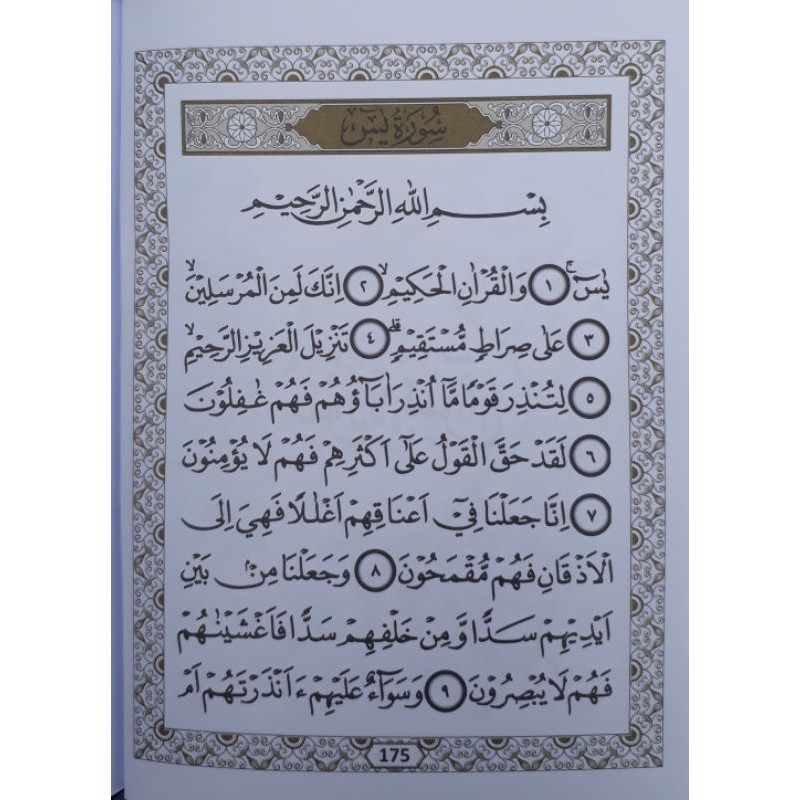 سُورَةُ يٰسٓ
بِسْمِ اللهِ الرَّحْمٰنِ الرَّحِيْمِ
يٰسٓ ۚ ﴿١﴾ وَالْقُرْاٰنِ الْحَكِيْمِۙ ﴿٢﴾ اِنَّكَ لَمِنَ الْمُرْسَلِيْنَۙ
﴿٣﴾ عَلٰى صِرَاطٍ مُّسْتَقِيْمٍۗ ﴿٤﴾ تَنْزِيْلَ الْعَزِيْزِ الرَّحِيْمِۙ
﴿٥﴾ لِتُنْذِرَ قَوْمًا مَّآ اُنْذِرَ اٰبَآؤُهُمْ فَهُمْ غٰفِلُوْنَ
﴿٦﴾ لَقَدْ حَقَّ الْقَوْلُ عَلٰٓى اَكْثَرِهِمْ فَهُمْ لَا يُؤْمِنُوْنَ
﴿٧﴾ اِنَّا جَعَلْنَا فِيْٓ اَعْنَاقِهِمْ اَغْلٰلًا فَهِيَ اِلَى
الْاَذْقَانِ فَهُمْ مُّقْمَحُوْنَ ﴿٨﴾ وَجَعَلْنَا مِنْۢ بَيْنِ
اَيْدِيْهِمْ سَدًّا وَّمِنْ خَلْفِهِمْ سَدًّا فَاَغْشَيْنٰهُمْ
فَهُمْ لَا يُبْصِرُوْنَ ﴿٩﴾ وَسَوَآءٌ عَلَيْهِمْ ءَاَنْذَرْتَهُمْ اَمْ
175